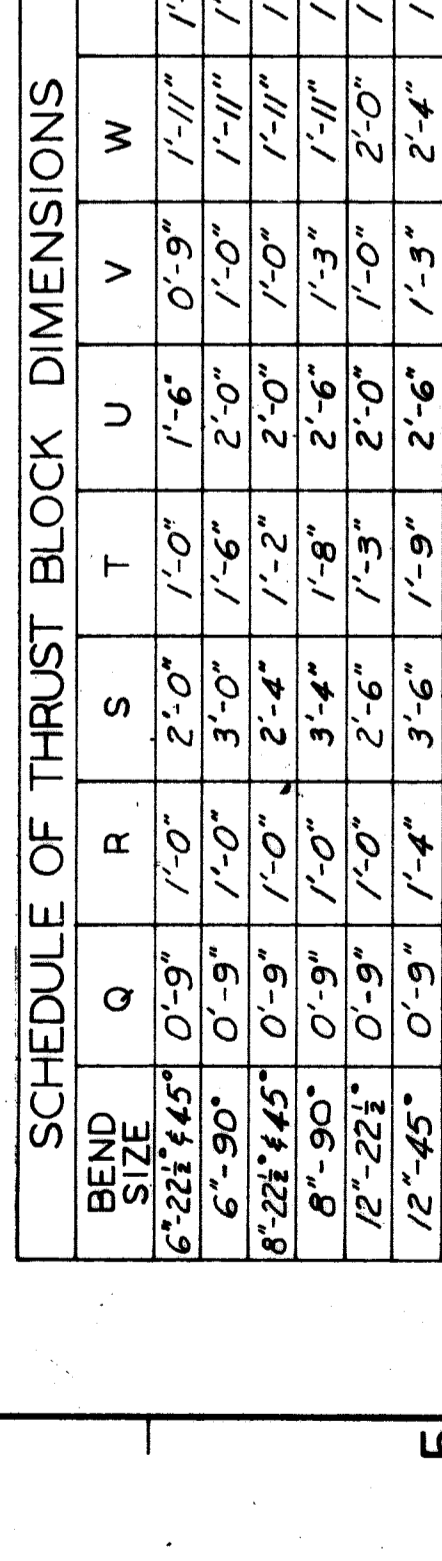 SCHEDULE OF THRUST BLOCK DIMENSIONS
BEND SIZE Q R S T U V W
6"-22½° & 45° 0'-9" 1'-0" 2'-0" 1'-0" 1'-6" 0'-9" 1'-11" 1'-
6"-90° 0'-9" 1'-0" 3'-0" 1'-6" 2'-0" 1'-0" 1'-11" 1'
8"-22½° & 45° 0'-9" 1'-0" 2'-4" 1'-2" 2'-0" 1'-0" 1'-11" 1
8"-90° 0'-9" 1'-0" 3'-4" 1'-8" 2'-6" 1'-3" 1'-11" 1
12"-22½° 0'-9" 1'-0" 2'-6" 1'-3" 2'-0" 1'-0" 2'-0" 1
12"-45° 0'-9" 1'-4" 3'-6" 1'-9" 2'-6" 1'-3" 2'-4" 1